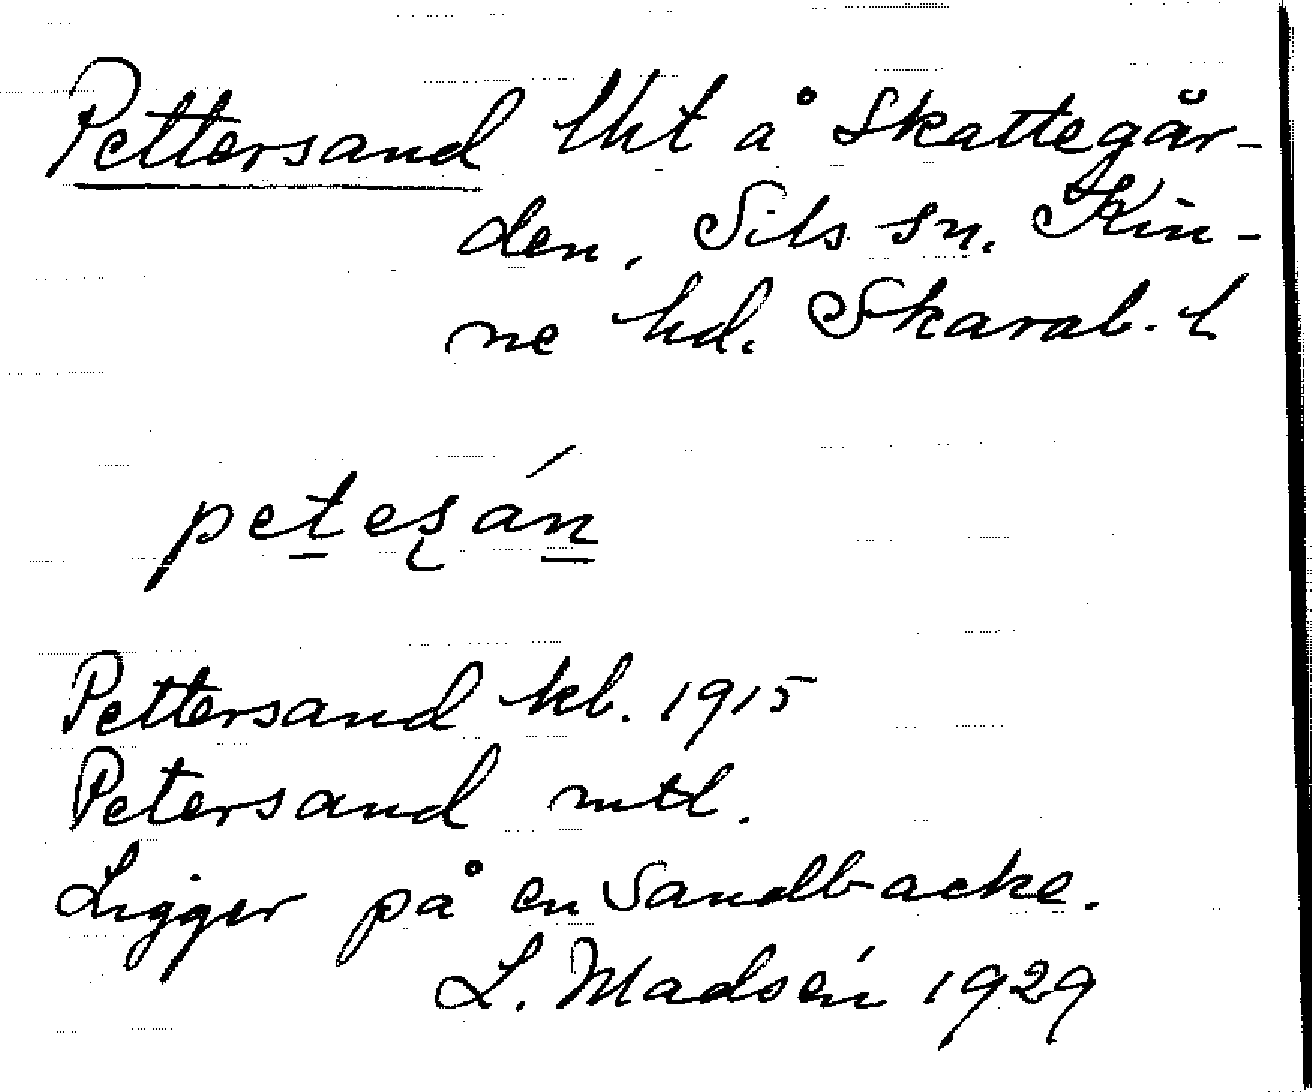 Pettersand lht å Skattegår-
den, Sils sn. Kin-
ne hd. Skarab. l
petes̨án
Pettersand kb. 1915
Petersand mtl.
Ligger på en Sandbacke.
L. Madsén 1929